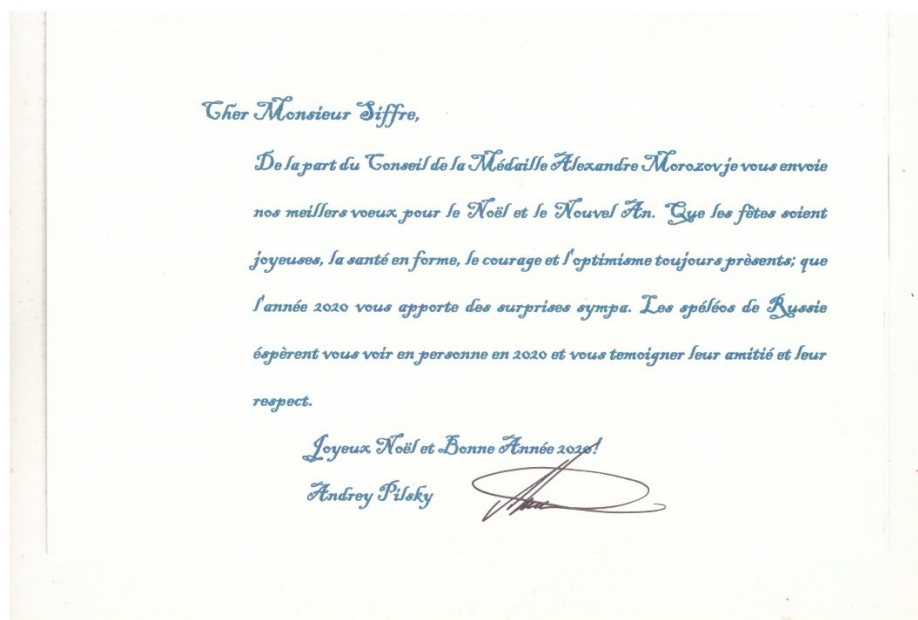 Cher Monsieur Siffre,
De la part du Conseil de la Médaille Alexandre Morozov je vous envoie
nos meillers voeux pour le Noël et le Nouvel An. Que les fêtes soient
joyeuses, la santé en forme, le courage et l'optimisme toujours prèsents; que
l'année 2020 vous apporte des surprises sympa. Les spéléos de Russie
éspèrent vous voir en personne en 2020 et vous temoigner leur amitié et leur
respect.
Joyeux Noël et Bonne Année 2020!
Andrey Pilsky